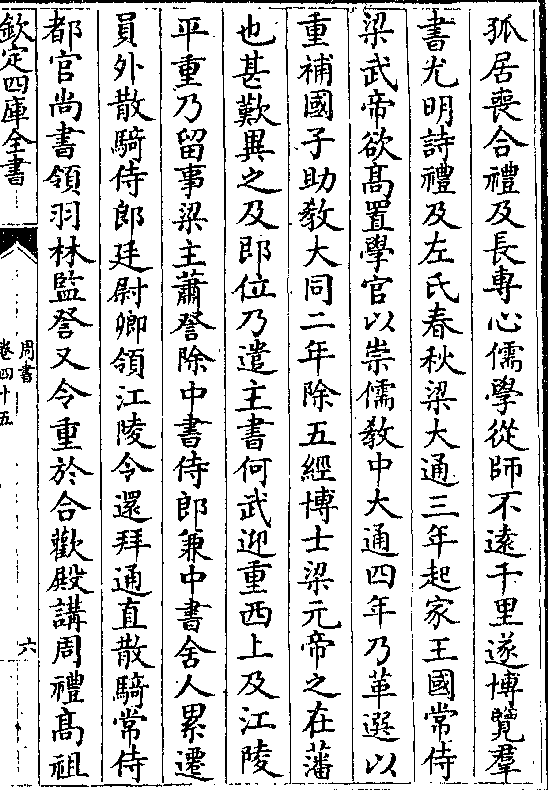 孤居喪合禮及長專心儒學從師不遠千里遂博覽羣
書尤明詩禮及左氏春秋梁大通三年起家王國常侍
梁武帝欲髙置學官以崇儒教中大通四年乃革選以
重補國子助教大同二年除五經博士梁元帝之在藩
也甚歎異之及即位乃遣主書何武迎重西上及江陵
平重乃留事梁主蕭詧除中書侍郎兼中書舍人累遷
員外散騎侍郎廷尉卿領江陵令還拜通直散騎常侍
都官尚書領羽林監詧又令重於合歡殿講周禮髙祖
欽定四庫全書
周書
卷四十五
六